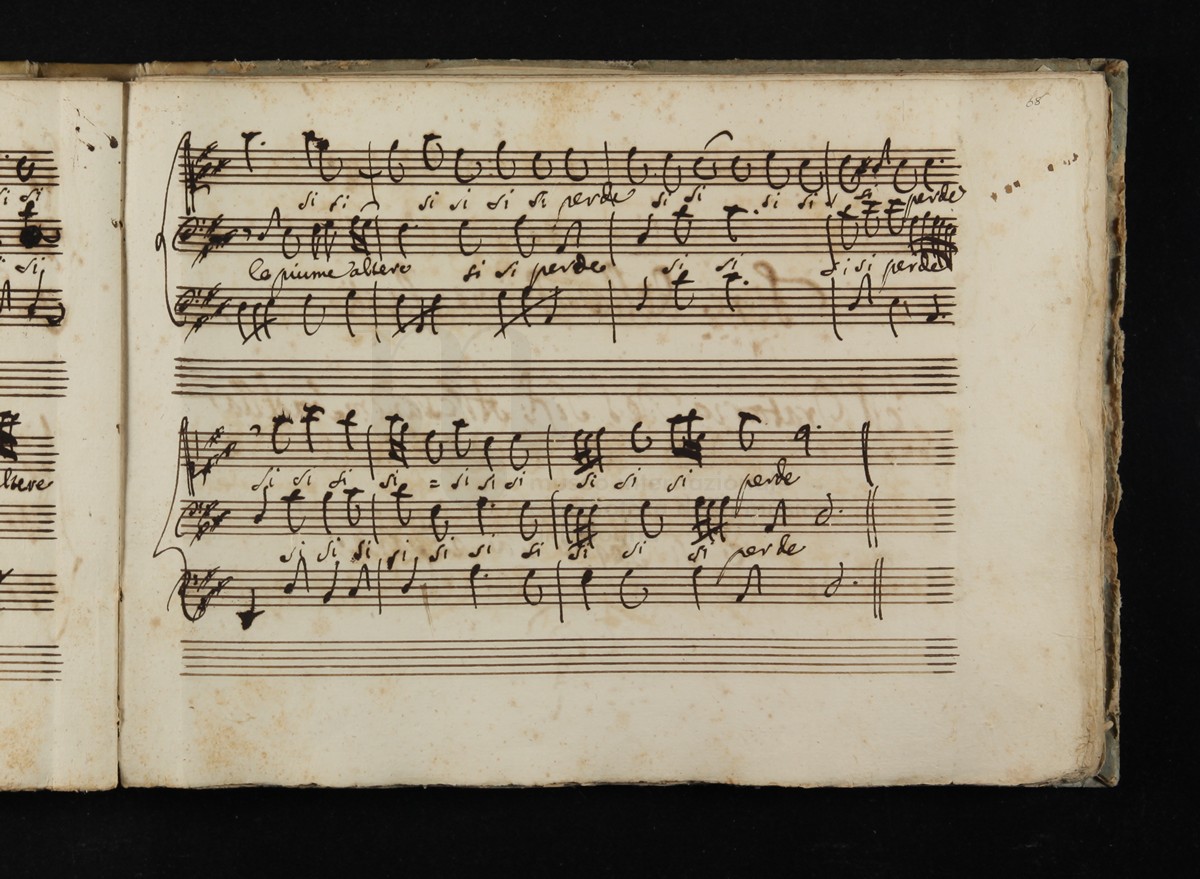 68
si si si si si si perde si si si si si perde
le piume altere si si perde si si si si perde
si si si si = si si si si si si perde
si si si si si si si si si si perde
si si
si si
ltere